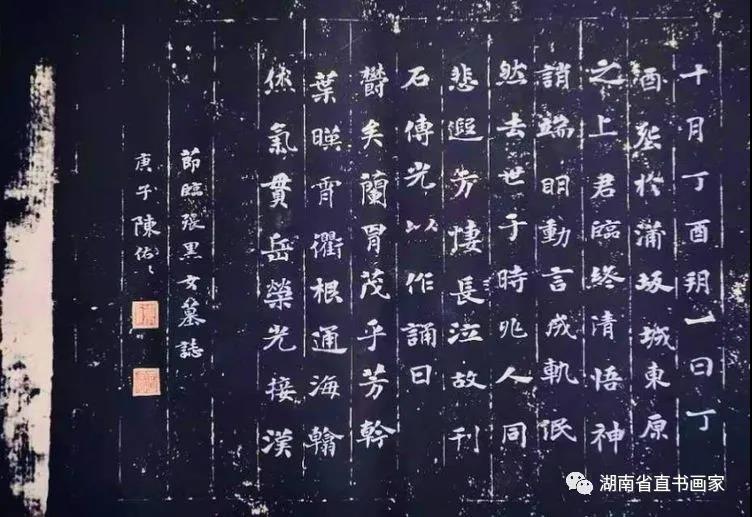 十月丁酉朔一日丁
酉葬於蒲坂城東原
之上君臨終清悟神
誚端明動言成軌泯
然去世于時兆人同
悲遐方悽長泣故刊
石傳光以作誦曰
鬱矣蘭胄茂乎芳幹
葉暎霄衢根通海翰
休氣貫岳榮光接漢
節臨張黑女墓誌
庚子陳佑
湖南省直书画家